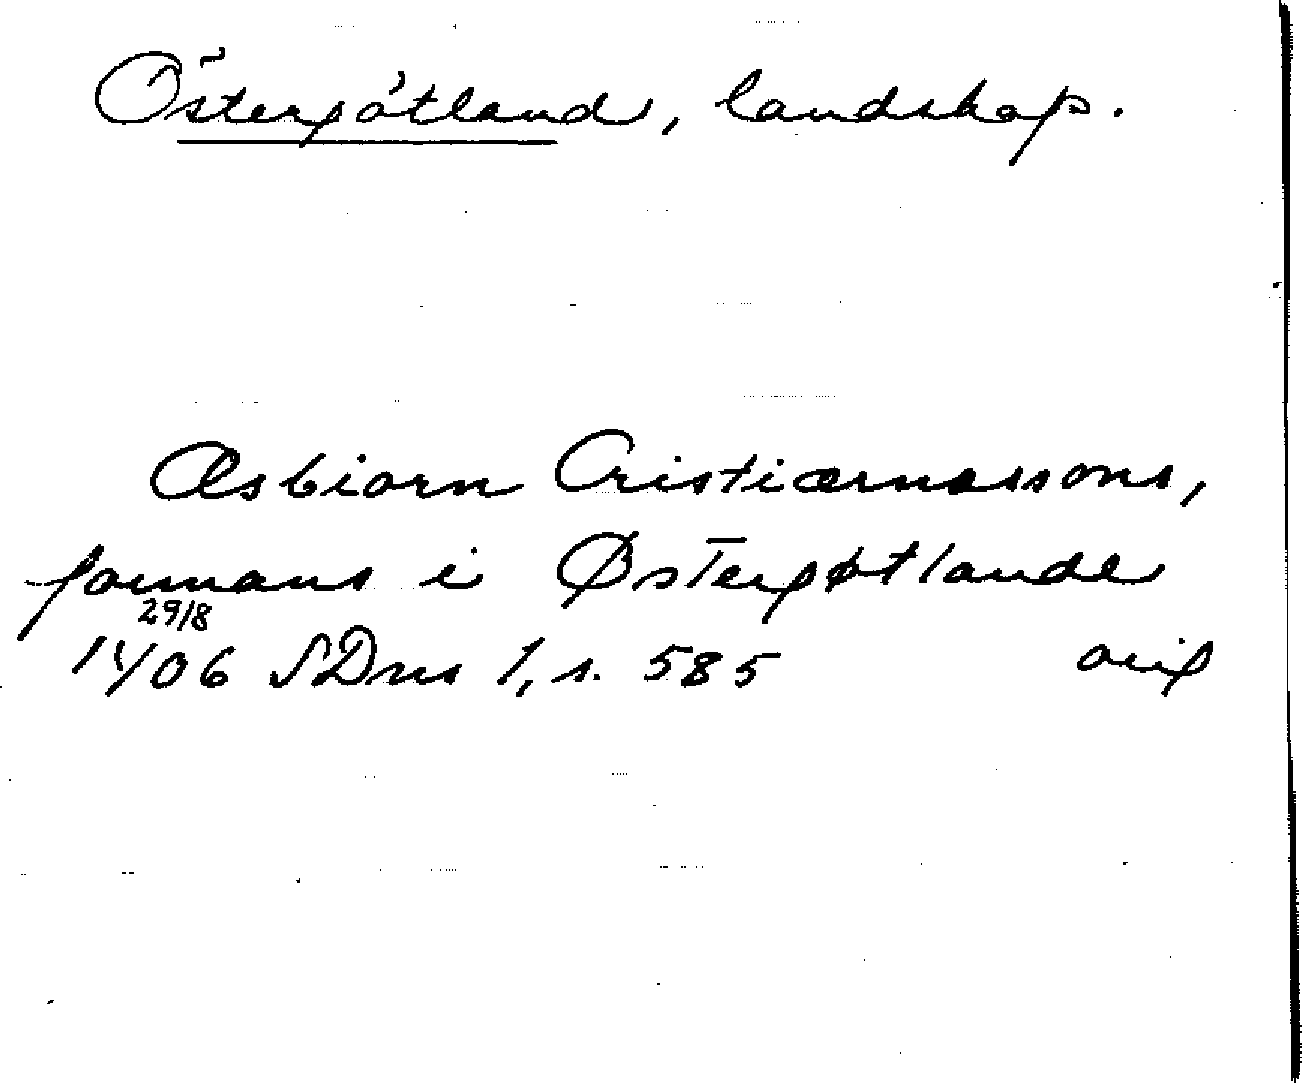 Östergötland, landskap.
Æsbiorn Cristiærnassons,
formans i Østergøtlande
29/8
1406 SDns 1, s. 585 orig